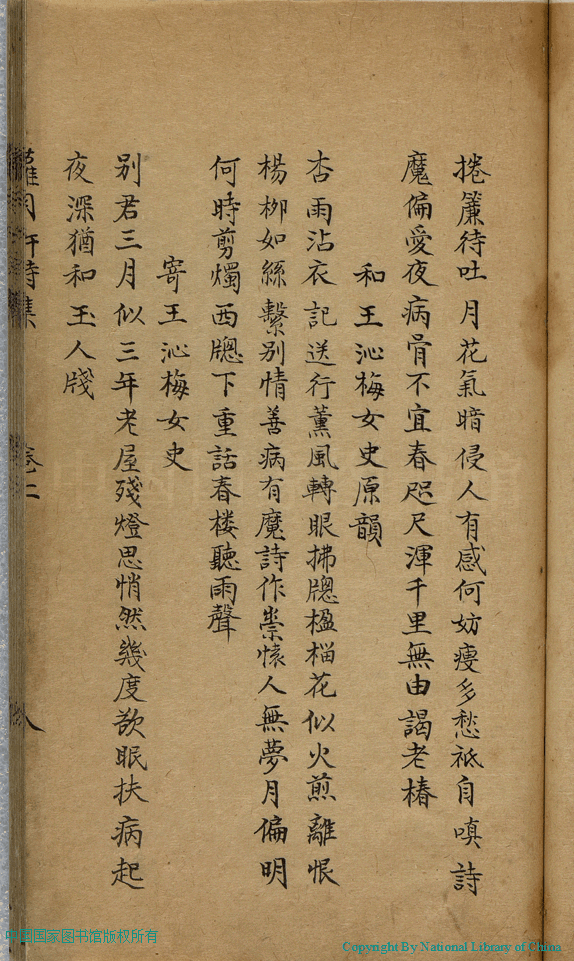 捲簾待吐月花氣暗侵人有感何妨瘦多愁祗自嗔詩
魔偏愛夜病骨不宜春咫尺渾千里無由謁老椿
和王沁梅女史原韻
杏雨沾衣記送行薰風轉眼拂牕楹榴花似火煎離恨
楊栁如絲繫别情善病有魔詩作祟懷人無夢月偏明
何時剪燭西牕下重話春楼聽雨聲
寄王沁梅女史
别君三月似三年老屋殘燈思悄然幾度欲眠扶病起
夜深猶和玉人牋
月軒詩集 卷二 八
中国国家图书馆版权所有
Copyright By National Library of China